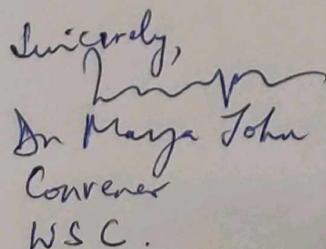 Sincerely,
Dr Maya John
Convener
W S C .